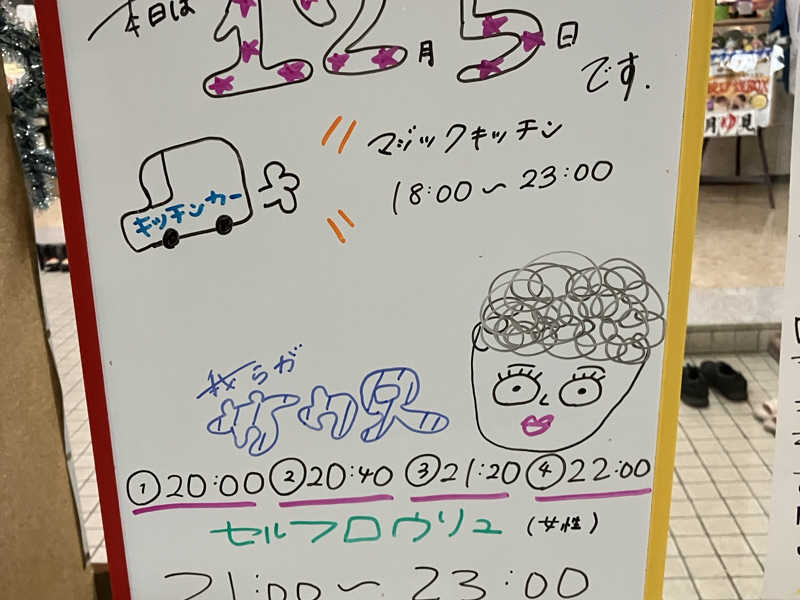 本日は
12月5日
です.
マジックキッチン
18:00~23:00
キッチンカー
我らが
①20:00 ②20:40 ③21:20 ④22:00
セルフロウリュ (女性)
21:00~23:00